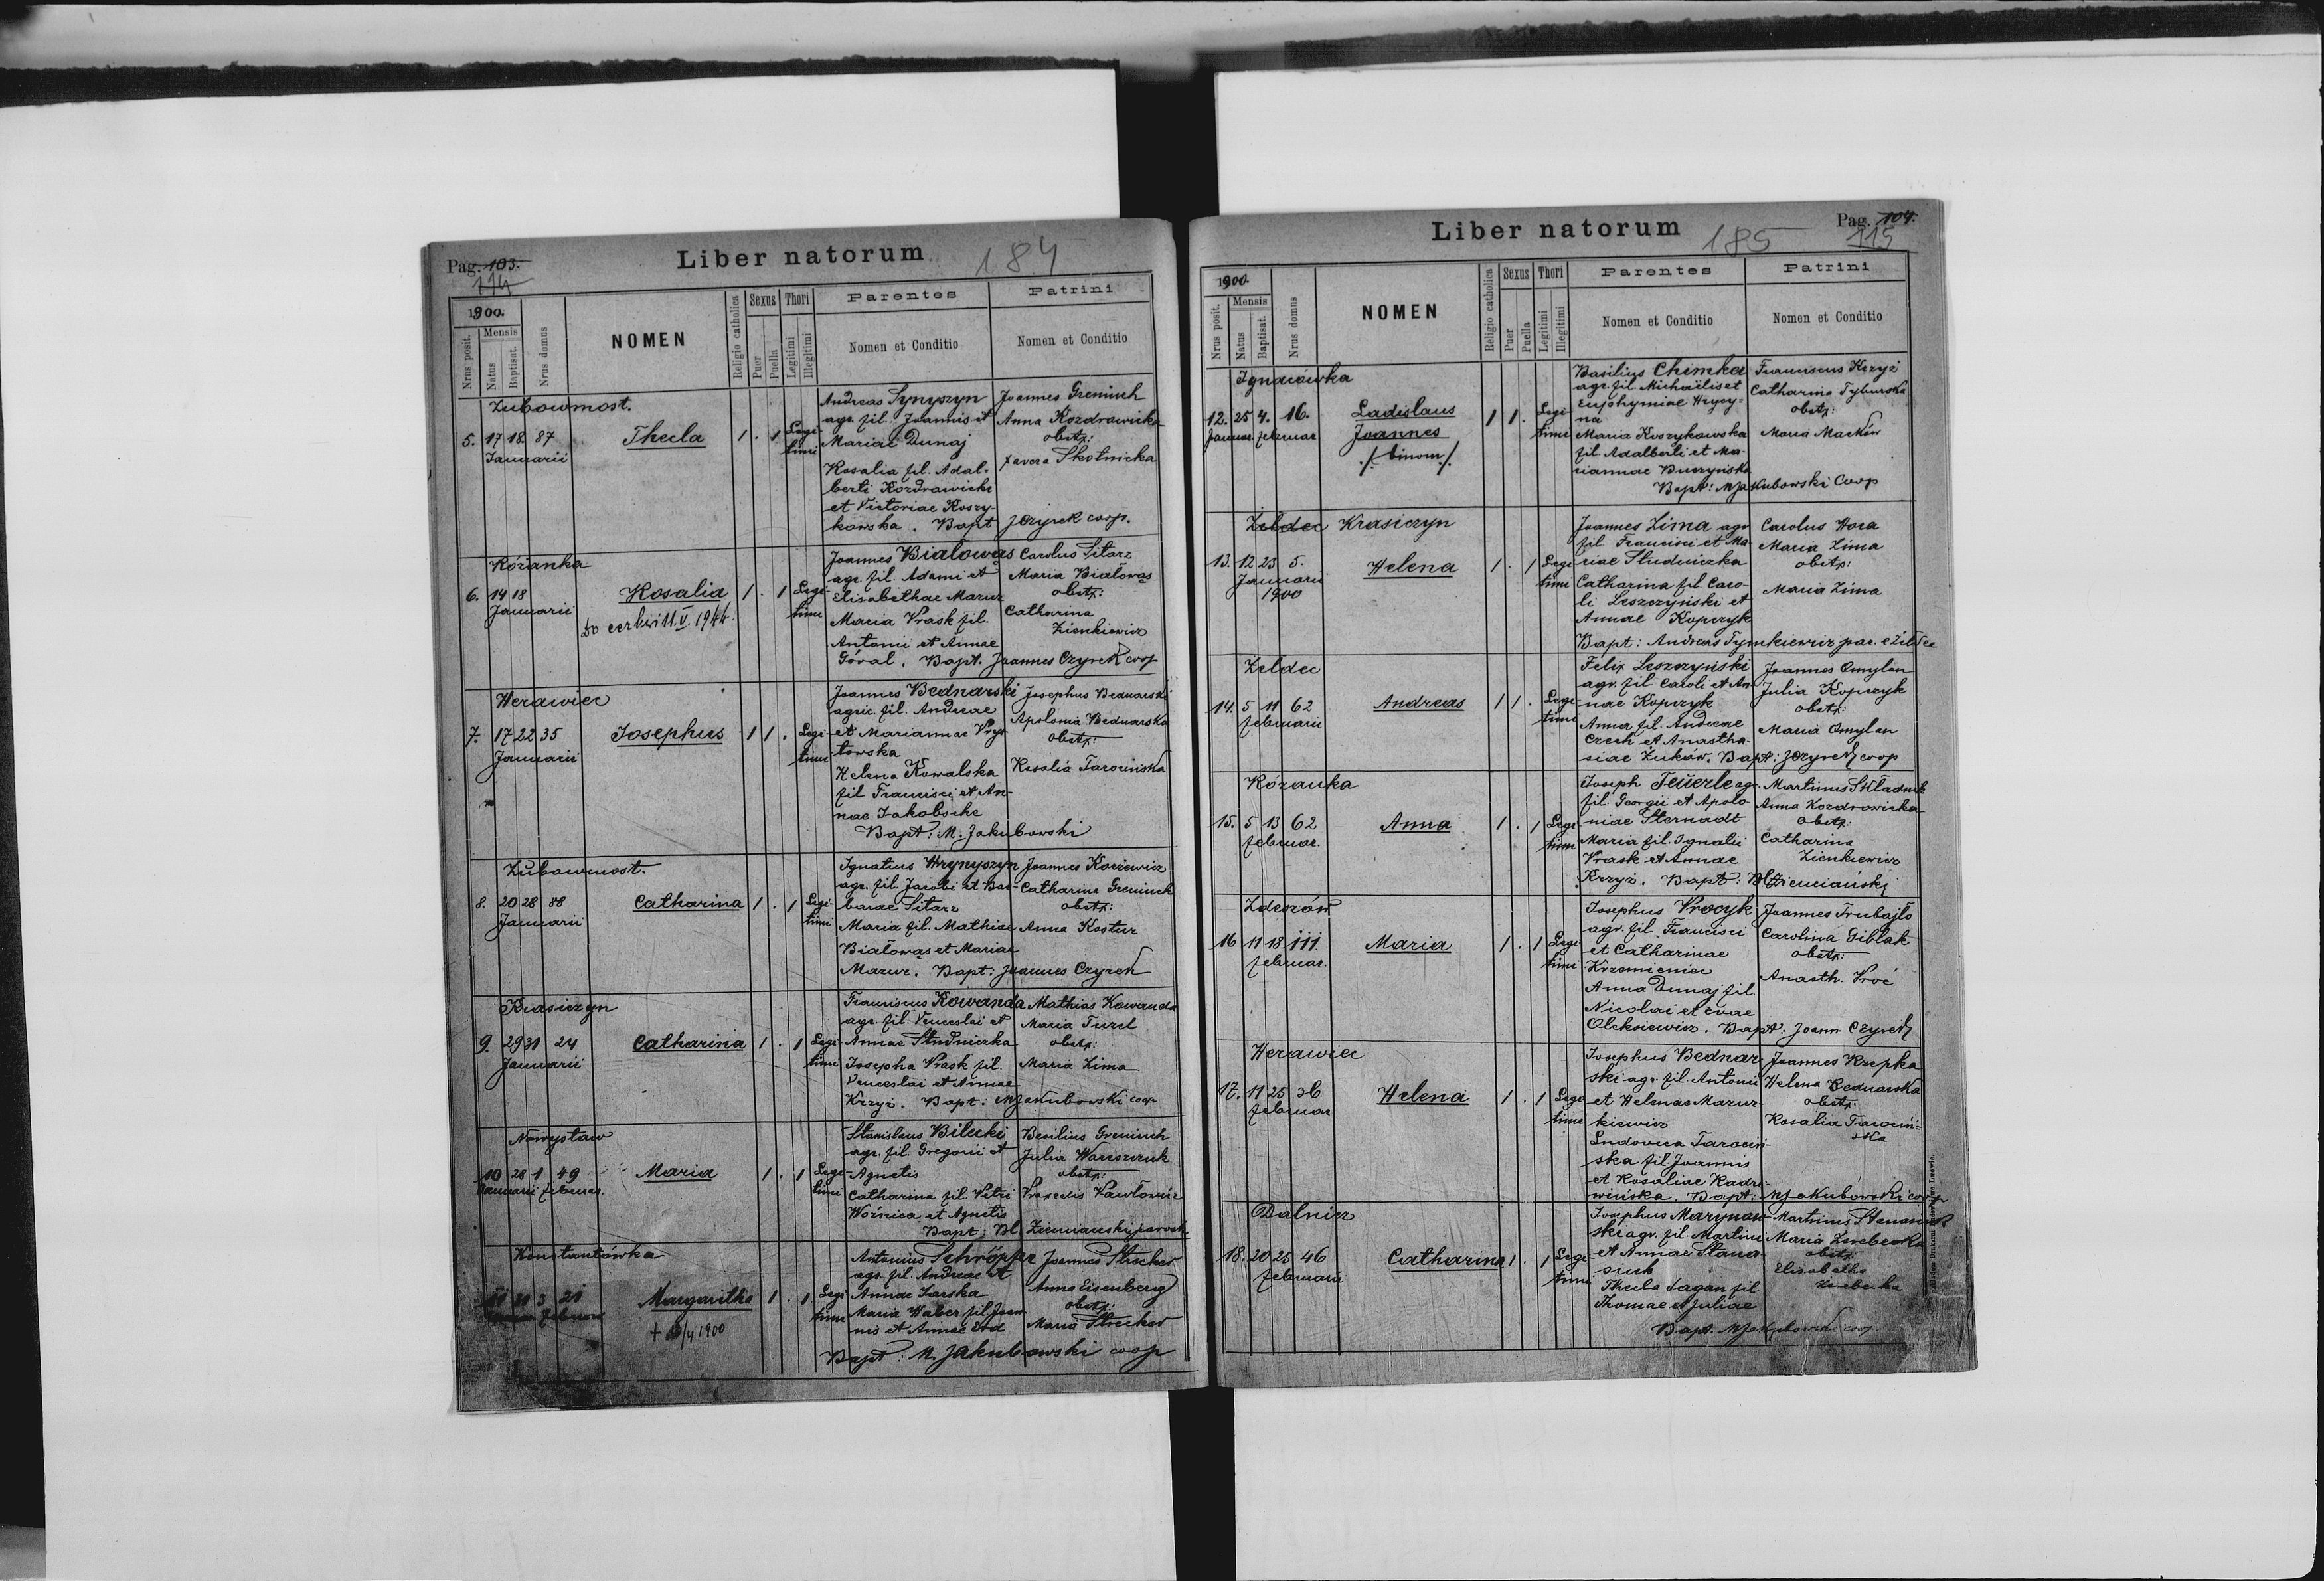 Pag. 103.
114
Liber natorum
184
1900.
Nrus posit.
Mensis
Natus
Baptisat.
Nrus domus
NOMEN
Religio catholica
Sexus
Puer
Puella
Thori
Legitimi
Illegitimi
Parentes
Nomen et Conditio
Patrini
Nomen et Conditio
Zubowmost.
5. 17 18. 87
Januarii
Thecla
1 . 1
Legi-
timi
Andreas Synyszyn
agr. fil. Joannis et
Mariae Dunaj
Rosalia fil. Adal-
berti Kozdrowicki
et Victoriae Koszy-
kowska. Bapt JCzyrek coop.
Joannes Greniuch
Anna Kozdrowicka
obstz:
Xavera Skotnicka
Różanka
6. 14 18
Januarii
Rosalia
1 . 1
Legi-
timi
Joannes Białowąs
agr. fil. Adami et
Elisabethae Mazur
Maria Wrask fil.
Antonii et Annae
Góral. Bapt. Joannes Czyrek coop
Carolus Sitarz
Maria Białowąs
obstz:
Catharina
Zienkiewicz
Werawiec
7. 17 22 35
Januarii
Josephus
1 1 .
Legi-
timi
Joannes Bednarski
agric. fil. Andreae
et Mariannae
towska
Helena Kowalska
fil Francisci et An-
nae Jakobsche
Bapt: M. Jakubowski
Josephus Bednarski
Apolonia Bednarska
obstz:
Rosalia Tarocińska
Zubowmost.
8. 20 28 88
Januarii
Catharina
1 . 1
Legi-
timi
Ignatius Hrynyszyn
agr. fil. Jacobi et Bar-
barae Sitarz
Maria fil. Mathiae
Białowąs et Mariae
Mazur. Bapt: Joannes Czyrek
Joannes Korżewicz
Catharina Greniuch
obstz:
Anna Kostur
Krasiczyn
9. 29 31 24
Januarii
Catharina
1 . 1
Legi-
timi
Franciscus Kowanda
agr. fil. Venceslai et
Annae Studniczka
Josepha Wrask fil.
Venceslai et Annae
Krzyż. Bapt: MJakubowski coop
Mathias Kowanda
Maria Turel
obstz:
Maria Zima
Nowystaw
10 28 1 49
Januarii februar.
Maria
1 . 1
Legi-
timi
Stanislaus Bilecki
agr. fil. Gregorii et
Agnetis
Catharina fil. Petri
Woźnica et Agnetis
Bapt: Bl Ziemiański paroch.
Basilius Greniuch
Julia Wareszczuk
obstz:
Konstantówka
11 31 3 21
februar
Margaritha
† 13/4 1900
1 . 1
Legi
timi
Antonius Schröpfer
agr. fil. Andreae et
Annae Jarska
Maria Haber fil Joan
nis et Annae Erd
Bapt: M. Jakubowski coop
Joannes Strecker
Anna Eisenberg
obstz:
Maria Strecker
Liber natorum
185
Pag. 104.
115
1900.
Nrus posit.
Mensis
Natus
Baptisat.
Nrus domus
NOMEN
Religio catholica
Sexus
Puer
Puella
Thori
Legitimi
Illegitimi
Parentes
Nomen et Conditio
Patrini
Nomen et Conditio
Ignacówka
12. 25 4. 16.
Januar. februar
Ladislaus
Joannes
/: binom :/
1 1 .
Legi-
timi
Basilius Chimka
agr. fil Michaëlis et
Euphymiae Hrycy-
na
Maria Koszykowska
fil Adalberti et Ma-
riannae Buczyńska
Bapt: MJakubowski Coop
Franciscus Krzyż
Catharina Tyburska
obstz:
Maria Maćków
Żeldec Krasiczyn
13. 12 23 5.
Januarii
1900
Helena
1 . 1
Legi
timi
Joannes Zima agr
fil Francisci et Ma-
riae Studniczka
Catharina fil Caro-
li Leszczyński et
Annae Kopczyk
Bapt: Andreas Tymkiewicz par. e Żeldec
Carolus Hora
Maria Zima
obstz:
Maria Zima
Żeldec
14. 5 11 62
februarii
Andreas
1 1 .
Legi-
timi
Felix Leszczyński
agr. fil Caroli et An-
nae Kopczyk
Anna fil. Andreae
Czech et Anastha-
siae Żuków. Bapt: JCzyrek coop
Joannes Omylan
Julia Kopczyk
obstz:
Maria Omylan
Różanka
15. 5 13 62
februar.
Anna
1 . 1
Legi
timi
Joseph Teuerle ag-
fil. Georgii et Apolo-
niae Sternadt
Maria fil. Ignatii
Wrask et Annae
Krzyż. Bapt: BlZiemiański
Martinus Składnik
Anna Kozdrowicka
obstz:
Catharina
Zienkiewicz
Zdeszów
16 11 18 111
februar.
Maria
1 . 1
Legi-
timi
Josephus Wrocyk
agr. fil Francisci
et Catharinae
Krzemieniec
Anna Dunaj fil
Nicolai et Evae
Oleksiewicz. Bapt: Joann Czyrek
Joannes Trubajło
Carolina Giblak
obstz:
Anasth. Wroć
Werawiec
17. 11 25 36
februar
Helena
1 . 1
Legi-
timi
Josephus Bednar-
ski agr. fil. Antonii
et Helenae Mazur-
kiewicz
Ludovica Tarociń-
ska fil Joannis
et Rosaliae Kadre-
wińska. Bapt: MJakubowski coop
Joannes Krepka
Helena Bednarska
obstz:
Rosalia Tarociń-
ska
Dalnicz
18. 20 25 46
februarii
Catharina
1 . 1
Legi-
timi
Josephus Marynow-
ski agr. fil. Martini
et Annae Stana-
siuk
Thecla Sagan fil
Thomae et Juliae
Bapt. MJakubowski coop
Martinus
Maria
obstz:
Elisabetha